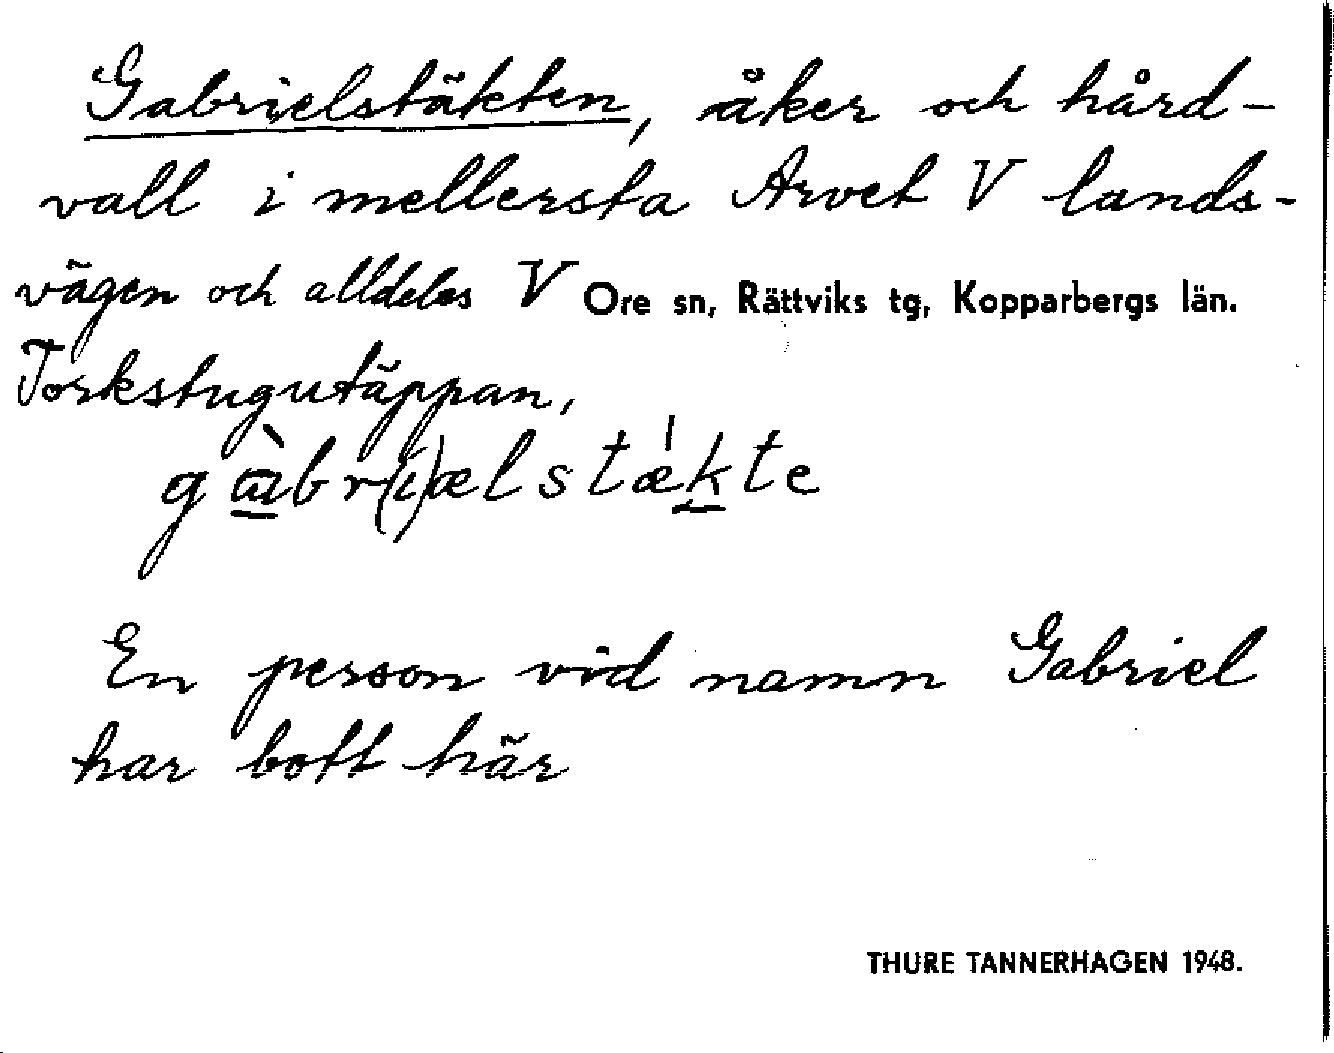 Gabrielstäkten, åker och hård-
vall i mellersta Arvet V lands-
vägen och alldeles V Ore sn, Rättviks tg, Kopparbergs län.
Torkstugutäppan,
gὰbr(i)ælstækte
En person vid namn Gabriel
har bott här
THURE TANNERHAGEN 1948.